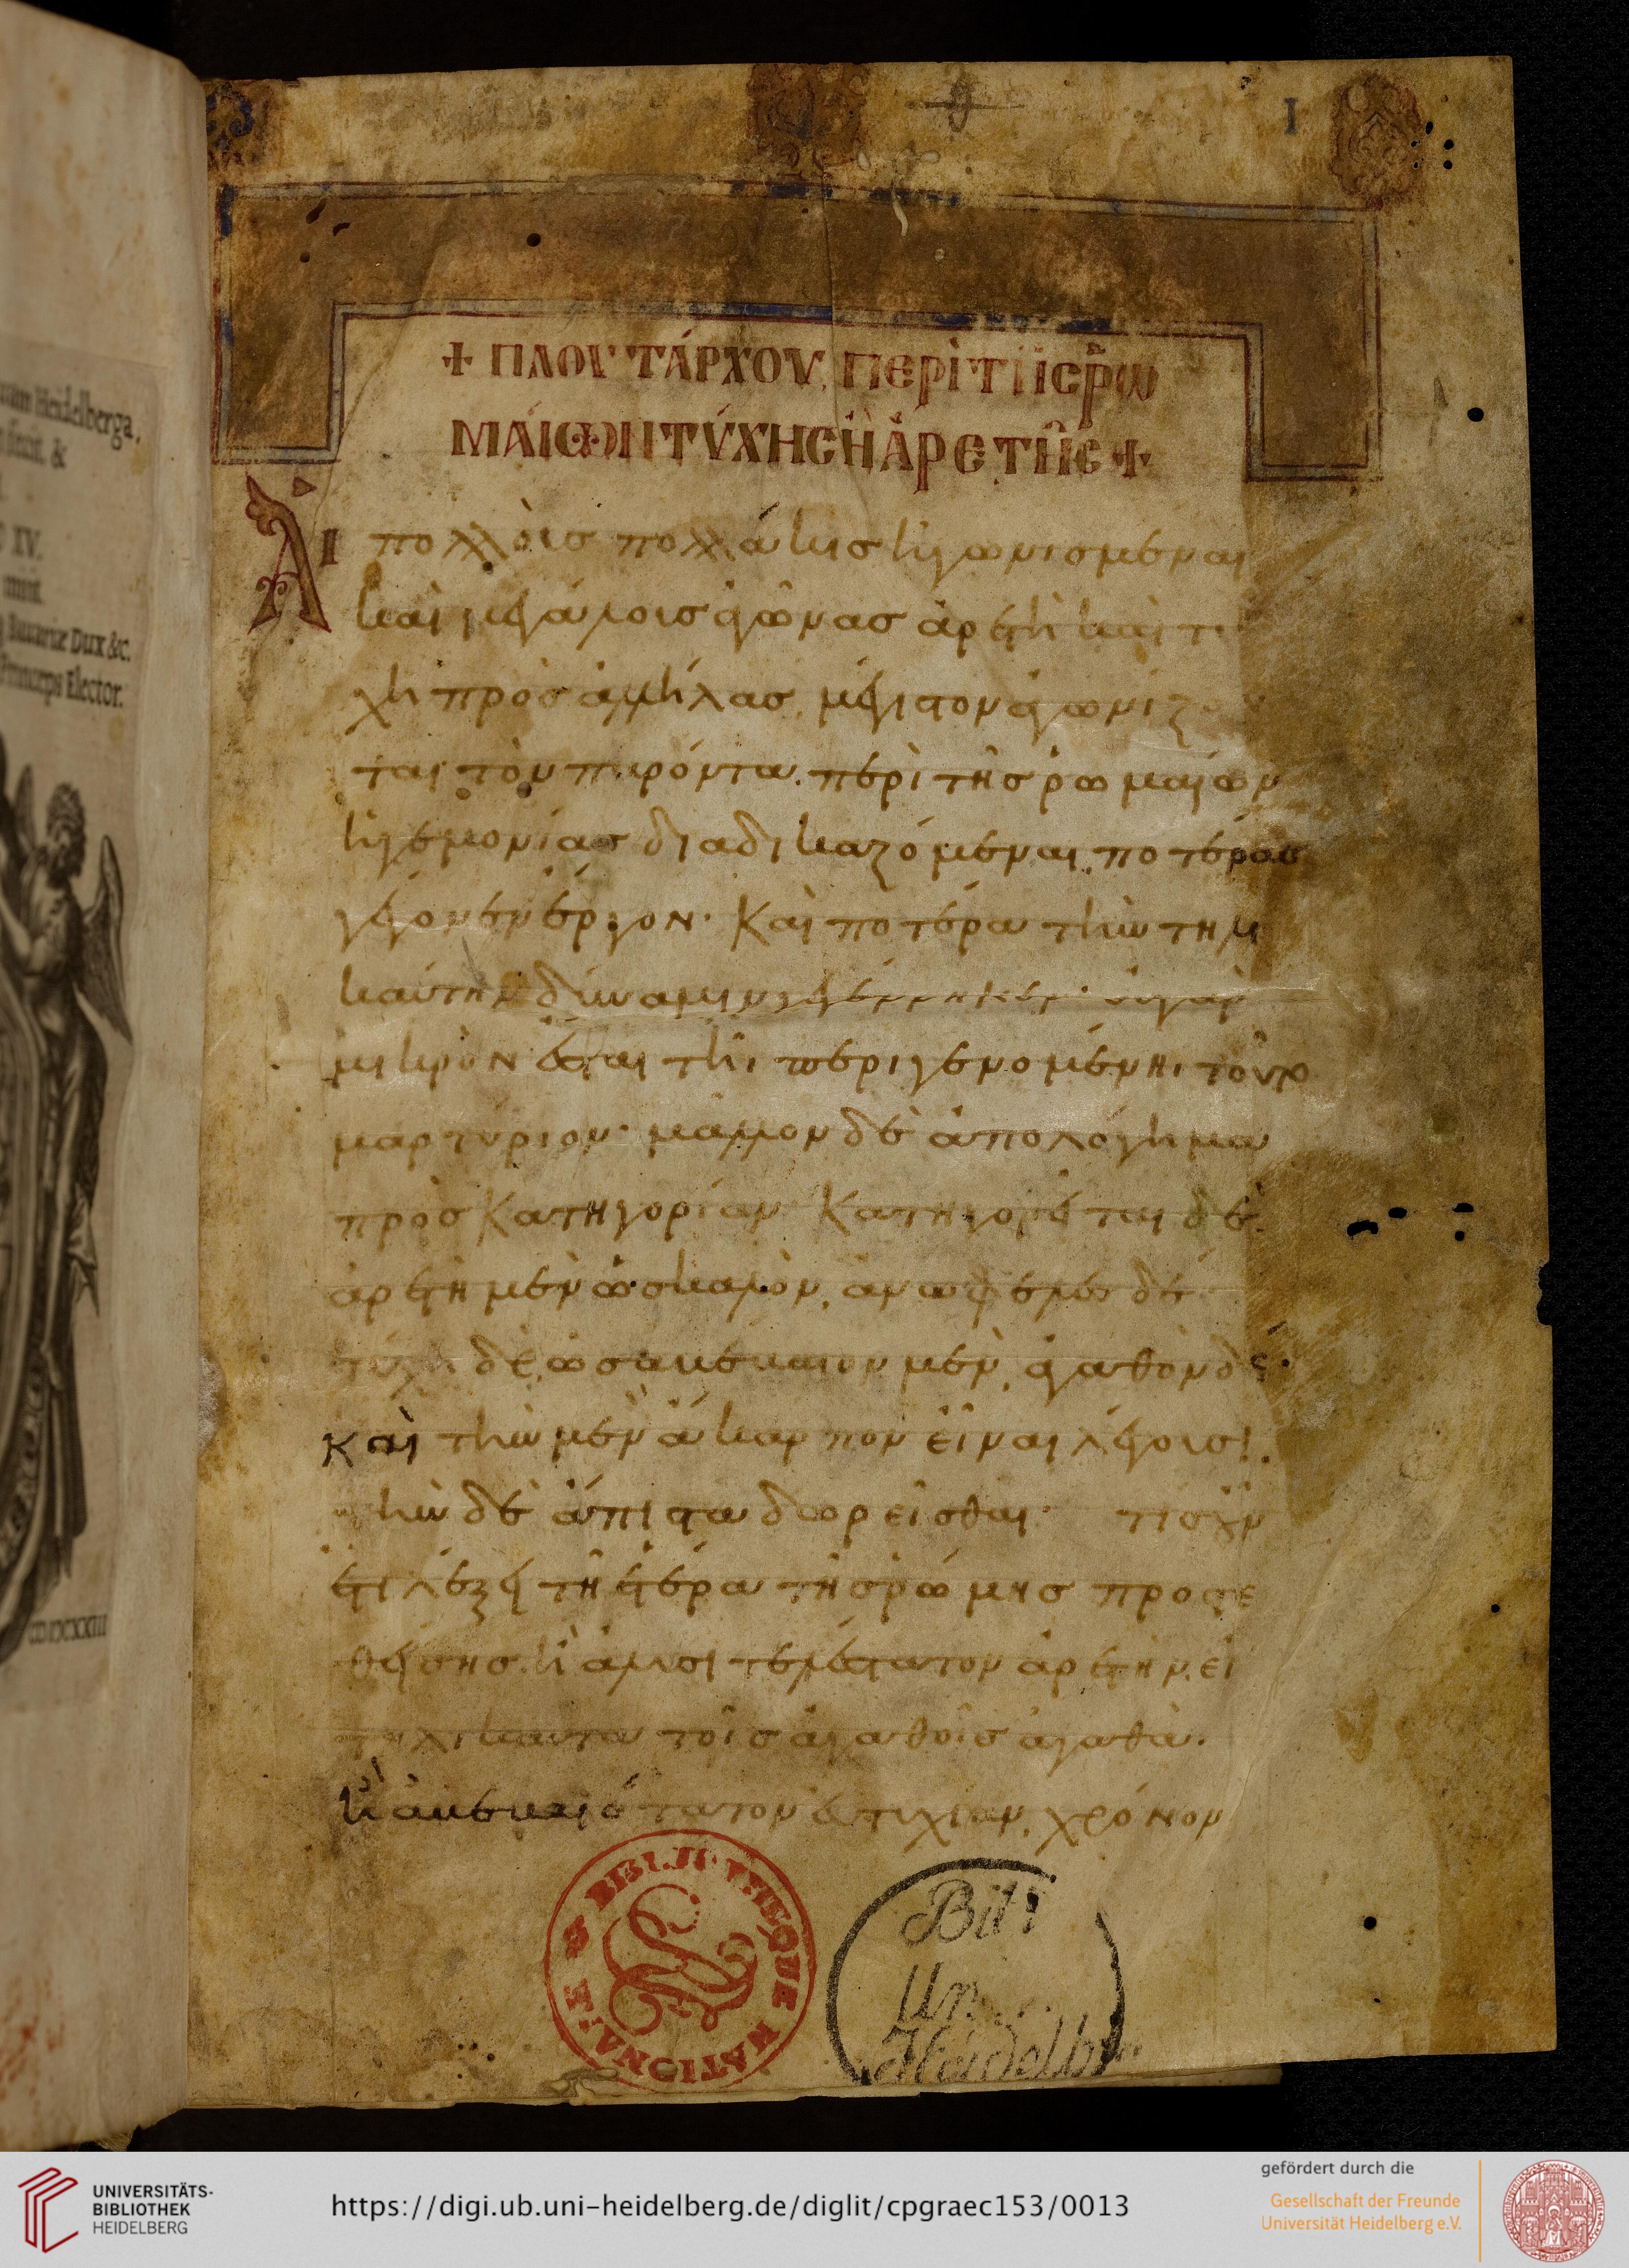 9
I
+ ΠΛΟΥΤΆΡΧΟΥ, ΠΕΡῚ ΤΗ͂Ϲ ῬΩ
ΜΆΙΩΝ ΤΎΧΗϹ Ἢ ἈΡΕΤΗ͂Ϲ +
ΑἹ πολλὸις πολλάκις ἠγωνισμέναι
καὶ μεγάλοις ἀγῶνας ἀρετὴ καὶ τύ
χη πρὸς ἀλλήλας, μέγιστον ἀγωνίζον
ται τὸν παρόντα. περὶ τῆς ῥωμαίων
ἡγεμονίας διαδικαζόμεναι, ποτέρας
γέγονεν ἔργον· καὶ ποτέρα τὴν τηλι
καύτην δύναμιν γεγέννηκεν· οὐ γὰρ
μικρὸν ἔσται τῆι περιγενομένηι τοῦτο
μαρτύριον· μᾶλλον δὲ ἀπολόγημα
πρὸς κατηγορίαν· κατηγορεῖται δὲ
ἀρετὴ μὲν ὡς καλὸν, ἀνωφελὲς δέ·
τύχη δὲ, ὡς ἀβέβαιον μὲν, ἀγαθὸν δέ·
καὶ τὴν μὲν ἄκαρπον εἶναι λέγουσι,
τὴν δὲ ἄπιστα δωρεῖσθαι· τίς οὐχ
ἐπιλέξει τῆ ἑτέρα τῆς ῥώμης προσε
θείσης. ἢ λυσιτελέστατον ἀρετὴν, εἰ
τηλικαῦτα τοῖς ἀγαθοῖς ἀγαθὰ.
ἢ βεβαιότατον εὐτυχίαν, χρόνον
BIBLIOTHEQUE NATIONALE
Bibl
Un
Heidelb
um Heidelberga,
fecit, &
XV.
mitt
Bauariæ Dux &c.
Princeps Elector.
UNIVERSITÄTS-
BIBLIOTHEK
HEIDELBERG
https://digi.ub.uni-heidelberg.de/diglit/cpgraec153/0013
gefördert durch die
Gesellschaft der Freunde
Universität Heidelberg e.V.